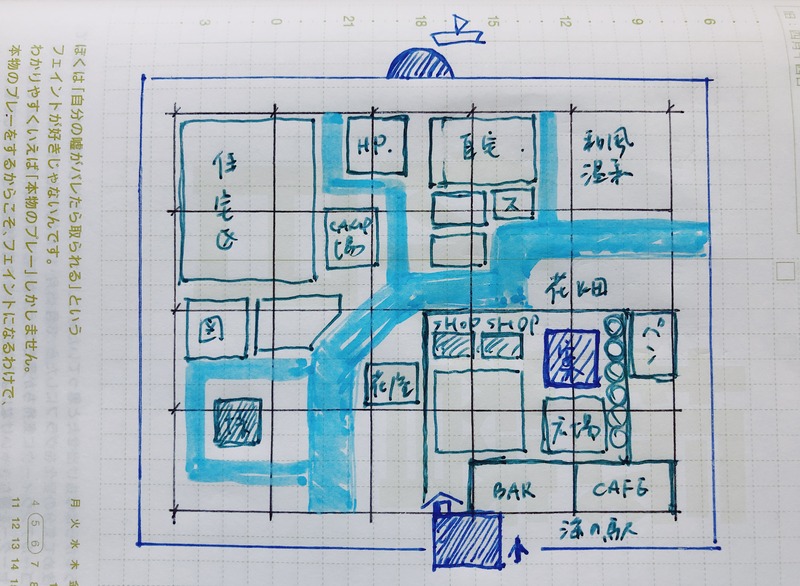 3
0
21
18
15
12
9
6
HP.
自宅
和風
温泉
住
宅
区
CAMP
場
ス
花畑
図
SHOP SHOP
花屋
広場
BAR
CAFE
海の駅
ぼくは「自分の嘘がバレたら取られる」という
フェイントが好きじゃないんです。
わかりやすくいえば「本物のプレー」しかしません。
本物のプレーをするからこそ、フェイントになるわけで、
月 火 水 木 金
4 5 6 7 8
11 12 13 14 15